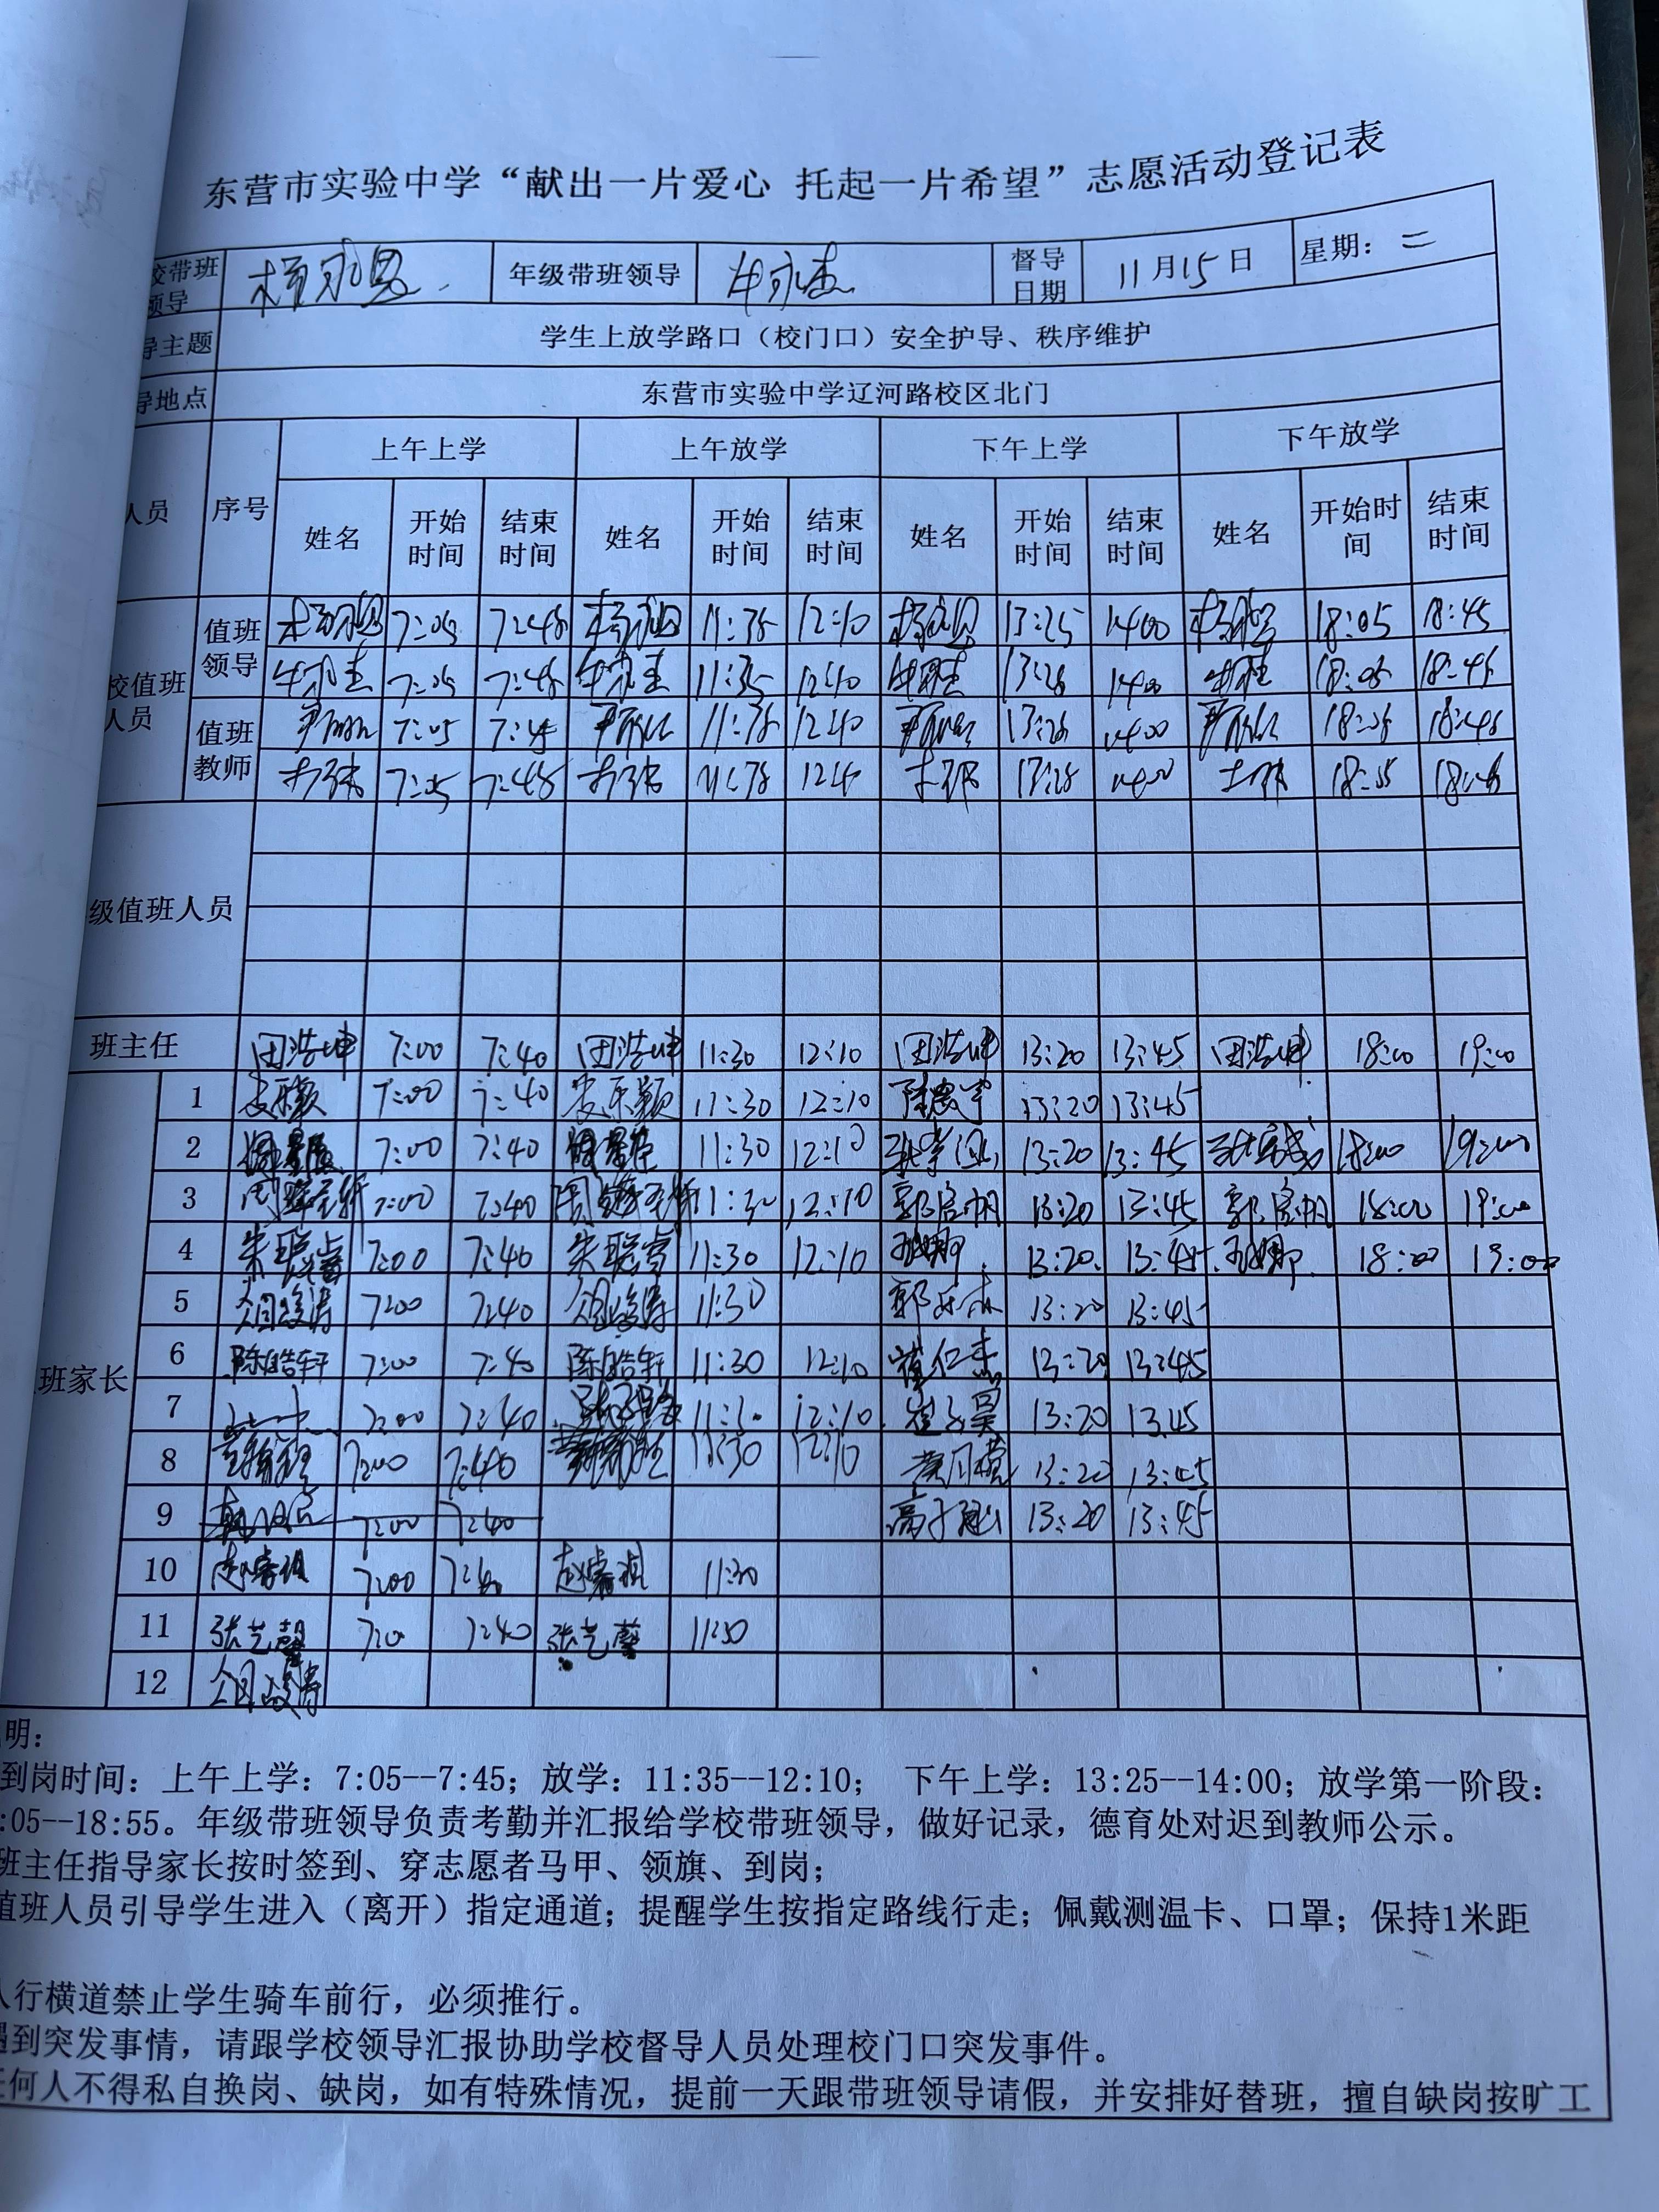 东营市实验中学“献出一片爱心 托起一片希望”志愿活动登记表
校带班领导 杨永恩 年级带班领导 牛永杰 督导日期 11月15日 星期：二
导主题 学生上放学路口（校门口）安全护导、秩序维护
导地点 东营市实验中学辽河路校区北门
人员 序号 上午上学 上午放学 下午上学 下午放学
姓名 开始时间 结束时间 姓名 开始时间 结束时间 姓名 开始时间 结束时间 姓名 开始时间 结束时间
校值班人员 值班领导 杨永恩 7:05 7:45 杨永恩 11:35 12:10 杨永恩 13:25 14:00 杨永恩 18:05 18:45
牛永杰 7:05 7:45 牛永杰 11:35 12:10 牛永杰 13:25 14:00 牛永杰 18:05 18:45
值班教师 7:05 7:45 11:35 12:10 13:25 14:00 18:05 18:45
7:05 7:45 11:35 12:10 13:25 14:00 18:05 18:45
级值班人员
班主任 田浩坤 7:00 7:40 田浩坤 11:30 12:10 田浩坤 13:20 13:45 田浩坤 18:00 19:00
班家长
1 7:00 7:40 11:30 12:10 13:20 13:45
2 7:00 7:40 11:30 12:10 13:20 13:45 18:00 19:00
3 7:00 7:40 11:30 12:10 13:20 13:45 18:00 19:00
4 朱聪睿 7:00 7:40 朱聪睿 11:30 12:10 13:20 13:45 18:00 19:00
5 7:00 7:40 11:30 13:20 13:45
6 陈皓轩 7:00 7:40 陈皓轩 11:30 12:10 13:20 13:45
7 7:00 7:40 11:30 12:10 崔子昊 13:20 13:45
8 7:00 7:40 11:30 12:10 13:20 13:45
9 7:00 7:40 13:20 13:45
10 赵睿祺 7:00 7:40 赵睿祺 11:30
11 张艺馨 7:00 7:40 张艺馨 11:30
12
明：
到岗时间：上午上学：7:05--7:45；放学：11:35--12:10； 下午上学：13:25--14:00；放学第一阶段：
:05--18:55。年级带班领导负责考勤并汇报给学校带班领导，做好记录，德育处对迟到教师公示。
班主任指导家长按时签到、穿志愿者马甲、领旗、到岗；
值班人员引导学生进入（离开）指定通道；提醒学生按指定路线行走；佩戴测温卡、口罩；保持1米距
人行横道禁止学生骑车前行，必须推行。
遇到突发事情，请跟学校领导汇报协助学校督导人员处理校门口突发事件。
任何人不得私自换岗、缺岗，如有特殊情况，提前一天跟带班领导请假，并安排好替班，擅自缺岗按旷工